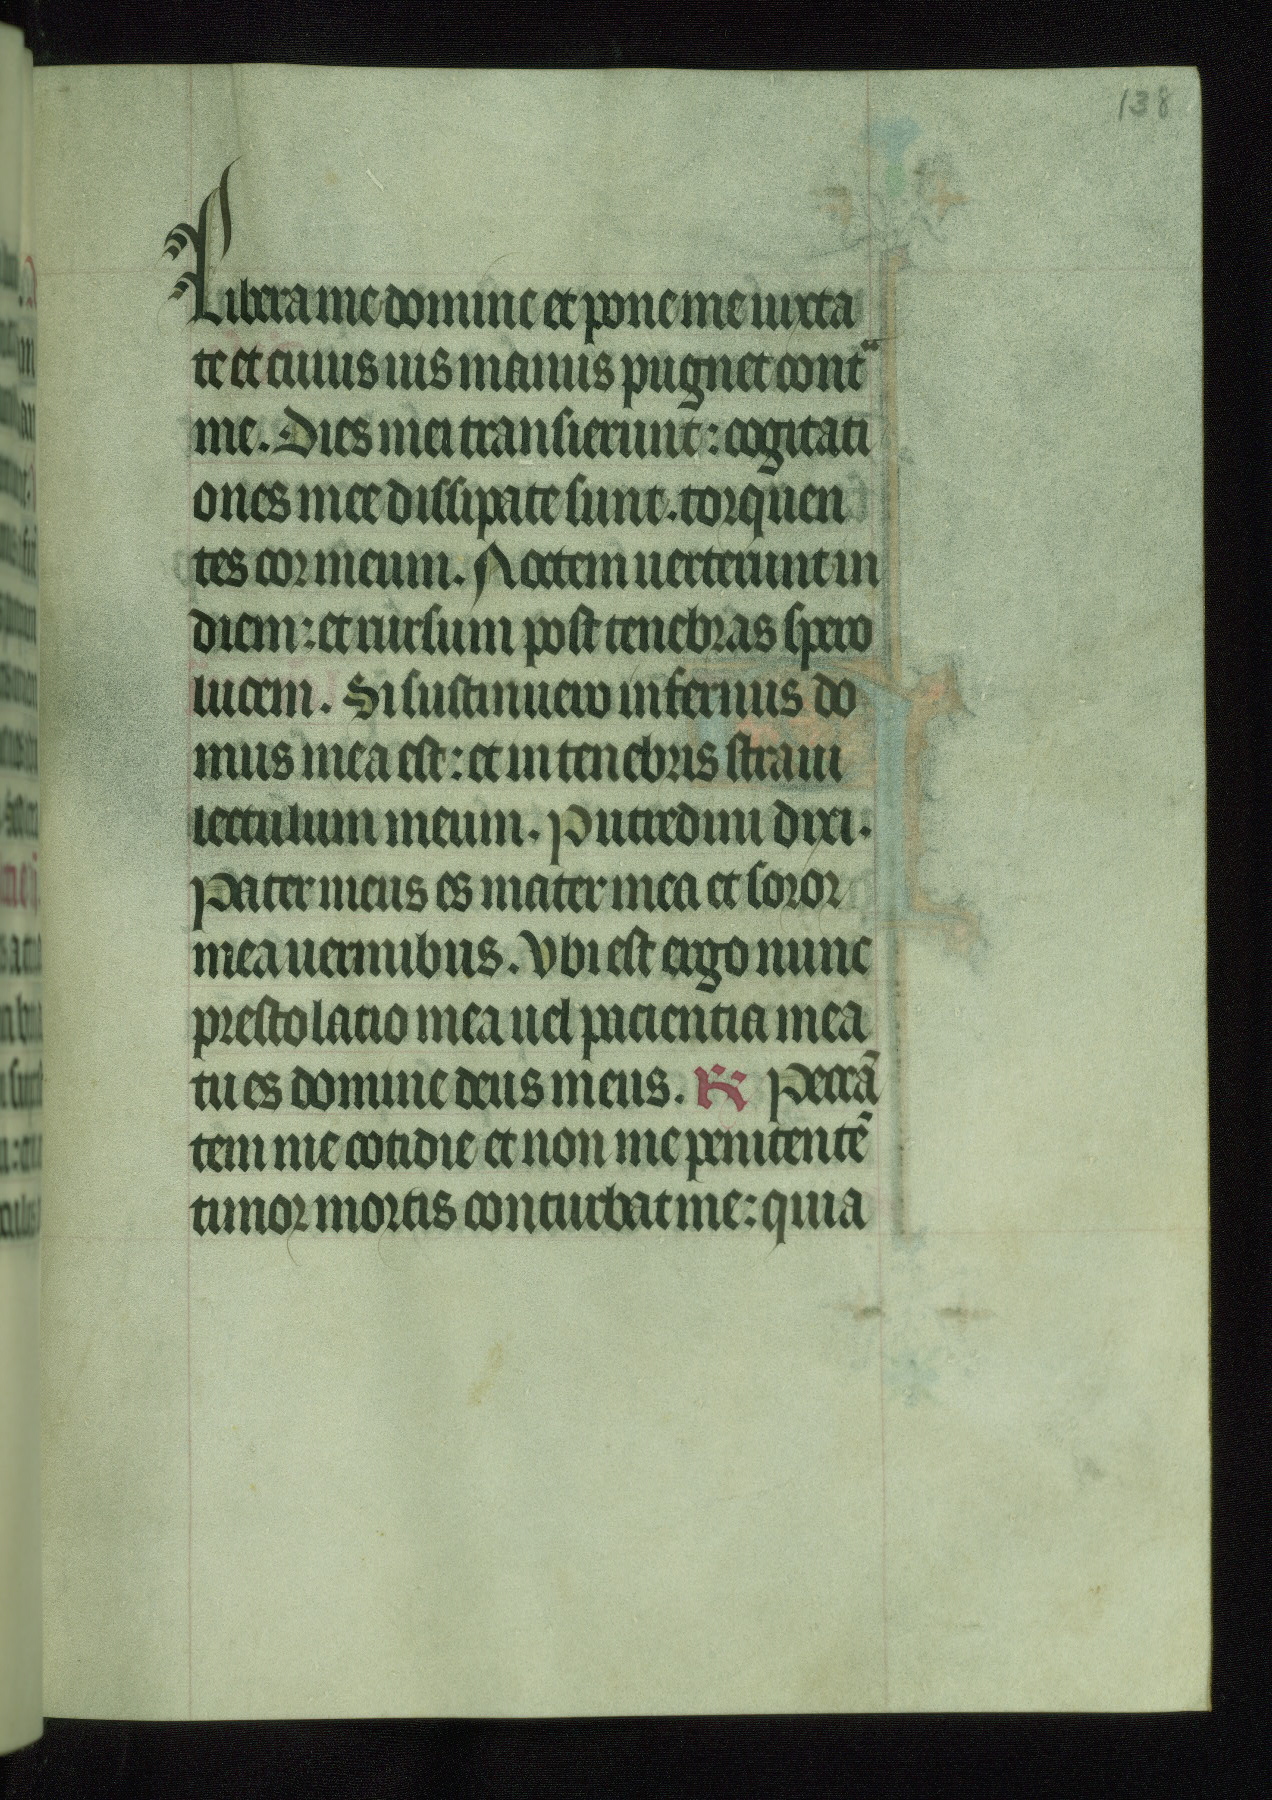 138
Libera me domine et pone me iuxta
te et cuius uis manus pugnet contᵃ
me. Dies mei transierunt: cogitati
ones mee dissipate sunt. torquen
tes cor meum. Noctem uerterunt in
diem: et rursum post tenebras spero
lucem. Si sustinuero infernus do
mus mea est: et in tenebris straui
lectulum meum. Putredini dixi.
Pater meus es mater mea et soror
mea uermibus. Vbi est ergo nunc
prestolatio mea uel paciencia mea
tu es domine deus meus. R Peccā
tem me cotidie et non me penitentē
timor mortis conturbat me: quia